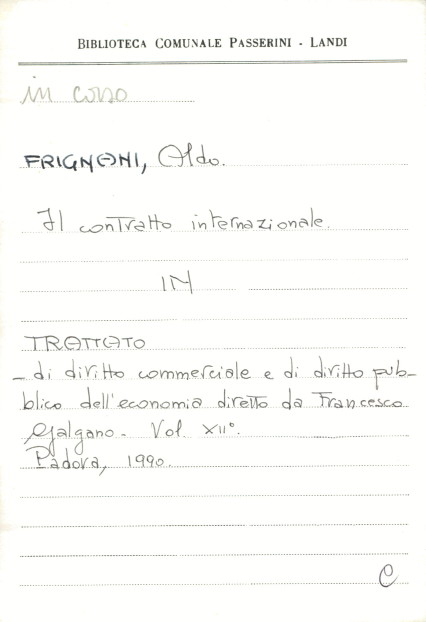 BIBLIOTECA COMUNALE PASSERINI - LANDI
in corso
FRIGNANI, Aldo.
Il contratto internazionale.
IN
TRATTATO
- di diritto commerciale e di diritto pub-
blico dell'economia diretto da Francesco
Galgano. Vol. XII°.
Padova, 1990.
C